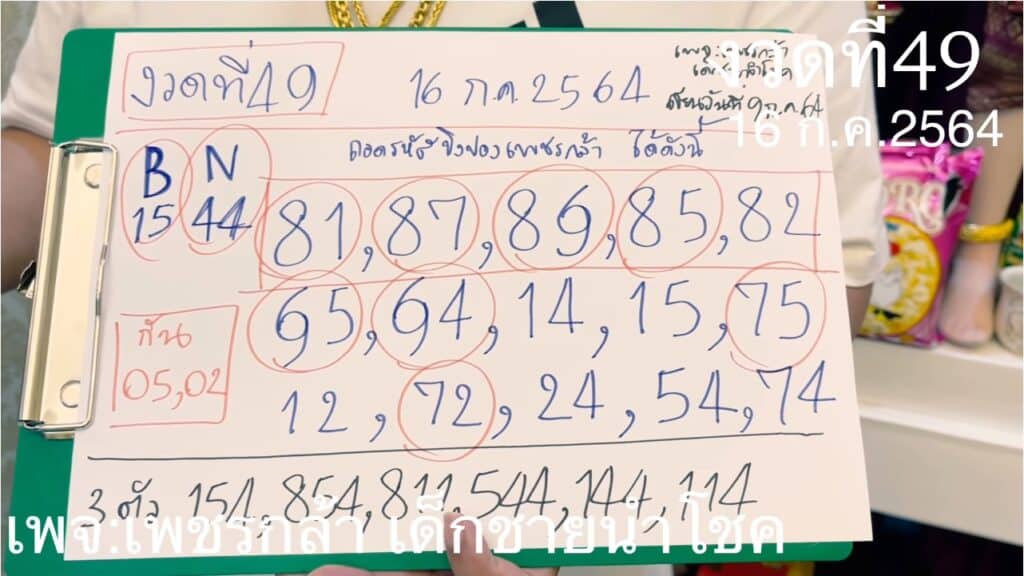 งวดที่49
16 ก.ค.2564
เพจ:เพชรกล้า
เด็กชายนำโชค
เขียนวันที่ 9 ก.ค.64
งวดที่49
16 ก.ค.2564
B N
15 44
ถอดรหัสปิงปองเพชรกล้า ได้ดังนี้
81, 87, 89, 85, 82
65, 64, 14, 15, 75
12, 72, 24, 54, 74
กัน
05,02
3 ตัว 154, 854, 811, 544, 144, 114
เพจ:เพชรกล้า เด็กชายนำโชค